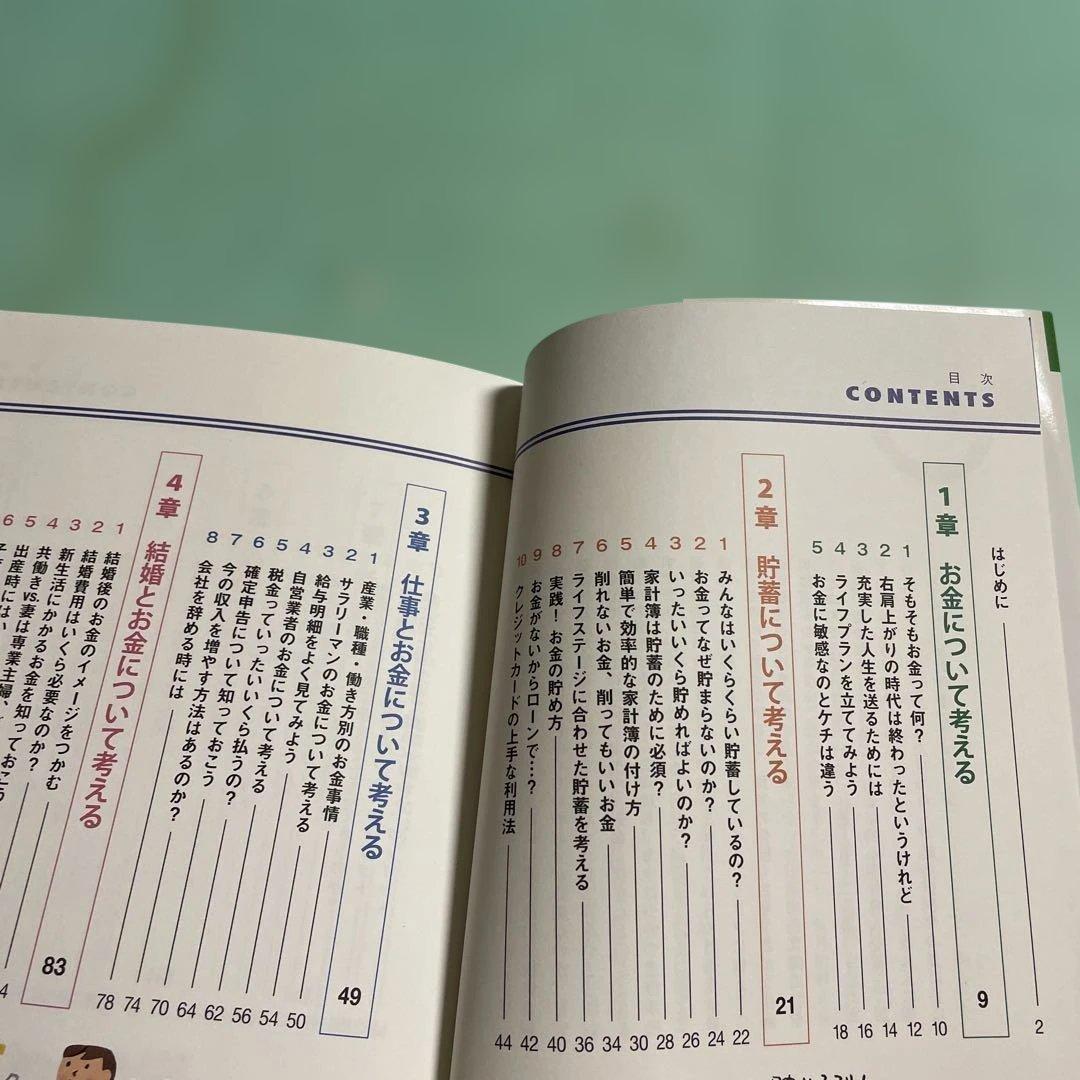 目次
CONTENTS
はじめに 2
1章 お金について考える 9
1 そもそもお金って何? 10
2 右肩上がりの時代は終わったというけれど 12
3 充実した人生を送るためには 14
4 ライフプランを立ててみよう 16
5 お金に敏感なのとケチは違う 18
2章 貯蓄について考える 21
1 みんなはいくらくらい貯蓄しているの? 22
2 お金ってなぜ貯まらないのか? 24
3 いったいいくら貯めればよいのか? 26
4 家計簿は貯蓄のために必須? 28
5 簡単で効率的な家計簿の付け方 30
6 削れないお金、削ってもいいお金 34
7 ライフステージに合わせた貯蓄を考える 36
8 実践!お金の貯め方 40
9 お金がないからローンで…? 42
10 クレジットカードの上手な利用法 44
3章 仕事とお金について考える 49
1 産業・職種・働き方別のお金事情 50
2 サラリーマンのお金について考える 54
3 給与明細をよく見てみよう 56
4 自営業者のお金について考える 62
5 税金っていったいいくら払うの? 64
6 確定申告について知っておこう 70
7 今の収入を増やす方法はあるのか? 74
8 会社を辞める時には 78
4章 結婚とお金について考える 83
1 結婚後のお金のイメージをつかむ
2 結婚費用はいくら必要なのか?
3 新生活にかかるお金を知っておこう
4 共働きvs.妻は専業主婦、
5 出産時には
6